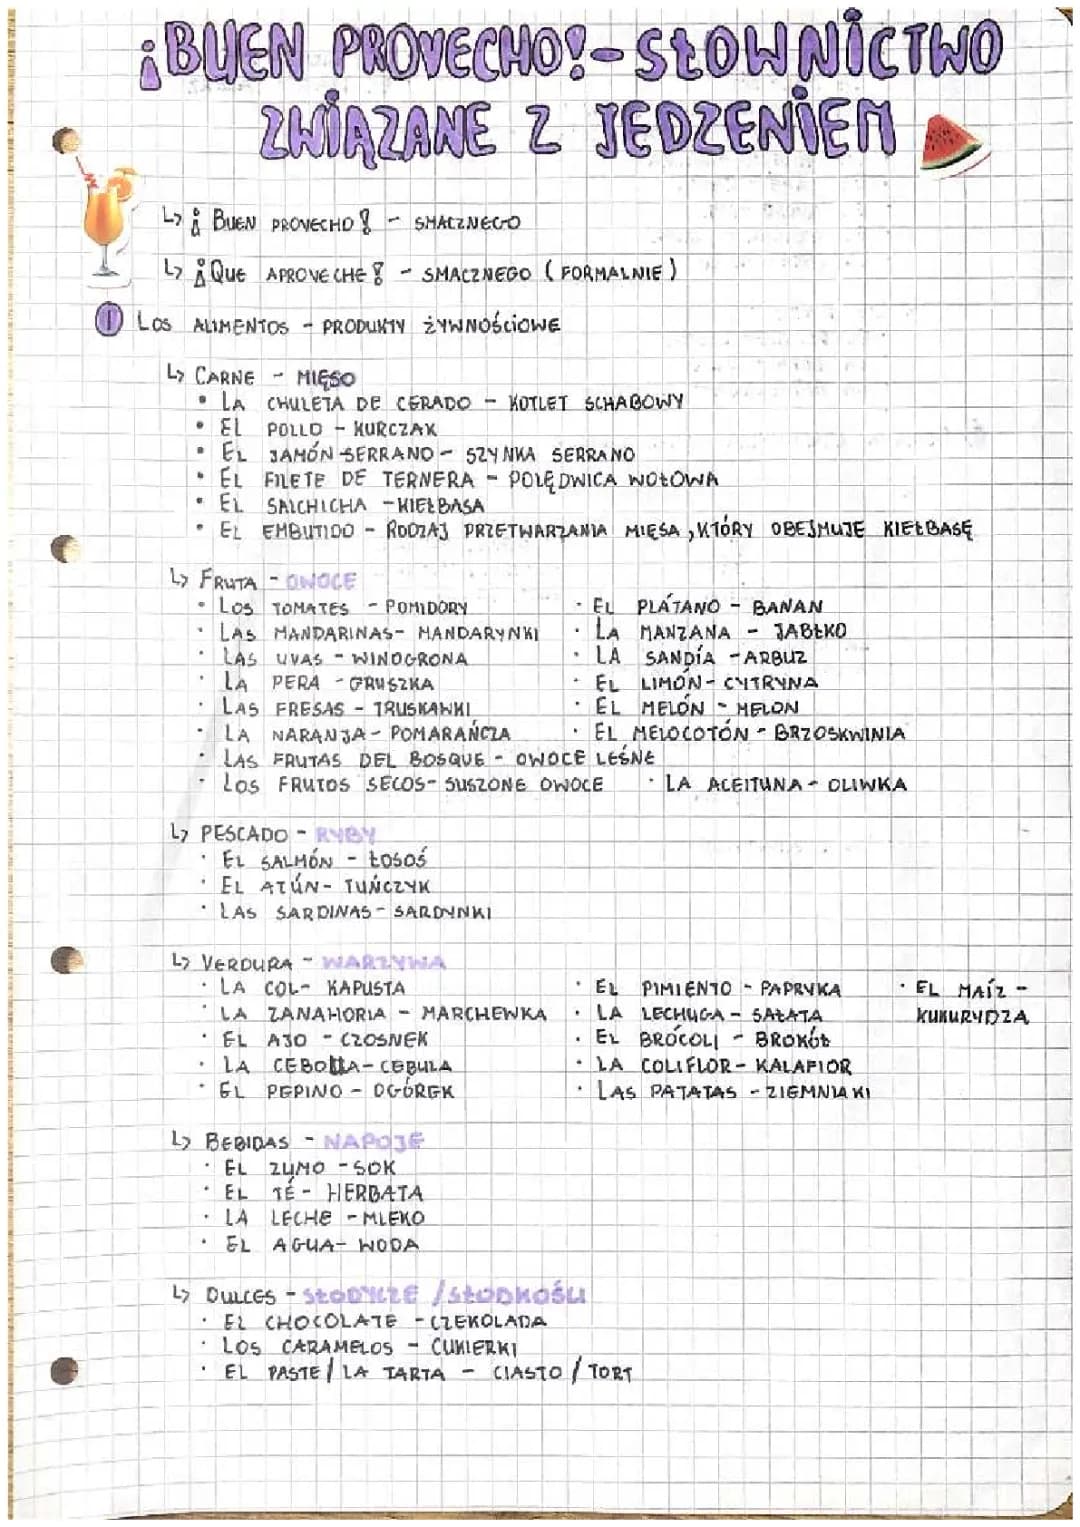 ¡BUEN PROVECHO!-SŁOWNICTWO
ZWIĄZANE Z JEDZENIEM
↳ ¡BUEN PROVECHO! - SMACZNEGO
↳ ¡QUE APROVECHE! - SMACZNEGO (FORMALNIE)
1 LOS ALIMENTOS - PRODUKTY ŻYWNOŚCIOWE
↳ CARNE - MIĘSO
• LA CHULETA DE CERADO - KOTLET SCHABOWY
• EL POLLO - KURCZAK
• EL JAMÓN SERRANO - SZYNKA SERRANO
• EL FILETE DE TERNERA - POLĘDWICA WOŁOWA
• EL SALCHICHA - KIEŁBASA
• EL EMBUTIDO - RODZAJ PRZETWARZANIA MIĘSA, KTÓRY OBEJMUJE KIEŁBASĘ
↳ FRUTA - OWOCE
• LOS TOMATES - POMIDORY
• LAS MANDARINAS - MANDARYNKI
• LAS UVAS - WINOGRONA
• LA PERA - GRUSZKA
• LAS FRESAS - TRUSKAWKI
• LA NARANJA - POMARAŃCZA
• LAS FRUTAS DEL BOSQUE - OWOCE LEŚNE
• LOS FRUTOS SECOS - SUSZONE OWOCE
• EL PLÁTANO - BANAN
• LA MANZANA - JABŁKO
• LA SANDÍA - ARBUZ
• EL LIMÓN - CYTRYNA
• EL MELÓN - MELON
• EL MELOCOTÓN - BRZOSKWINIA
• LA ACEITUNA - OLIWKA
↳ PESCADO - RYBY
• EL SALMÓN - ŁOSOŚ
• EL ATÚN - TUŃCZYK
• LAS SARDINAS - SARDYNKI
↳ VERDURA - WARZYWA
• LA COL - KAPUSTA
LA ZANAHORIA - MARCHEWKA
• EL AJO - CZOSNEK
• LA CEBOLLA - CEBULA
• EL PEPINO - OGÓREK
• EL PIMIENTO - PAPRYKA
• LA LECHUGA - SAŁATA
• EL BRÓCOLI - BROKÓŁ
• LA COLIFLOR - KALAFIOR
• LAS PATATAS - ZIEMNIAKI
• EL MAÍZ -
KUKURYDZA
↳ BEBIDAS - NAPOJE
• EL ZUMO - SOK
• EL TÉ - HERBATA
• LA LECHE - MLEKO
• EL AGUA - WODA
↳ DULCES - SŁODYCZE / SŁODKOŚCI
• EL CHOCOLATE - CZEKOLADA
• LOS CARAMELOS - CUKIERKI
• EL PASTE / LA TARTA - CIASTO / TORT